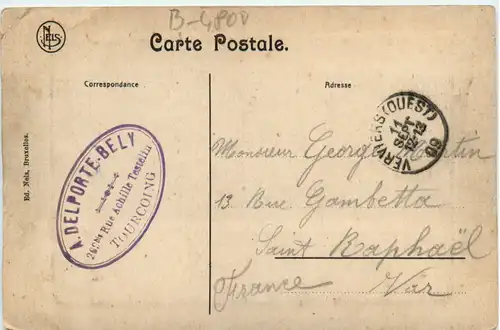 B-4800
NELS
Carte Postale.
Correspondance
Adresse
Ed. Nels, Bruxelles.
A. DELPORTE-BELY
26 Cbis Rue Achille Testelin
TOURCOING
VERVIERS (OUEST)
11
SEPT
12-13
09
Monsieur Georges Martin
13 Rue Gambetta
Saint Raphaël
France Var